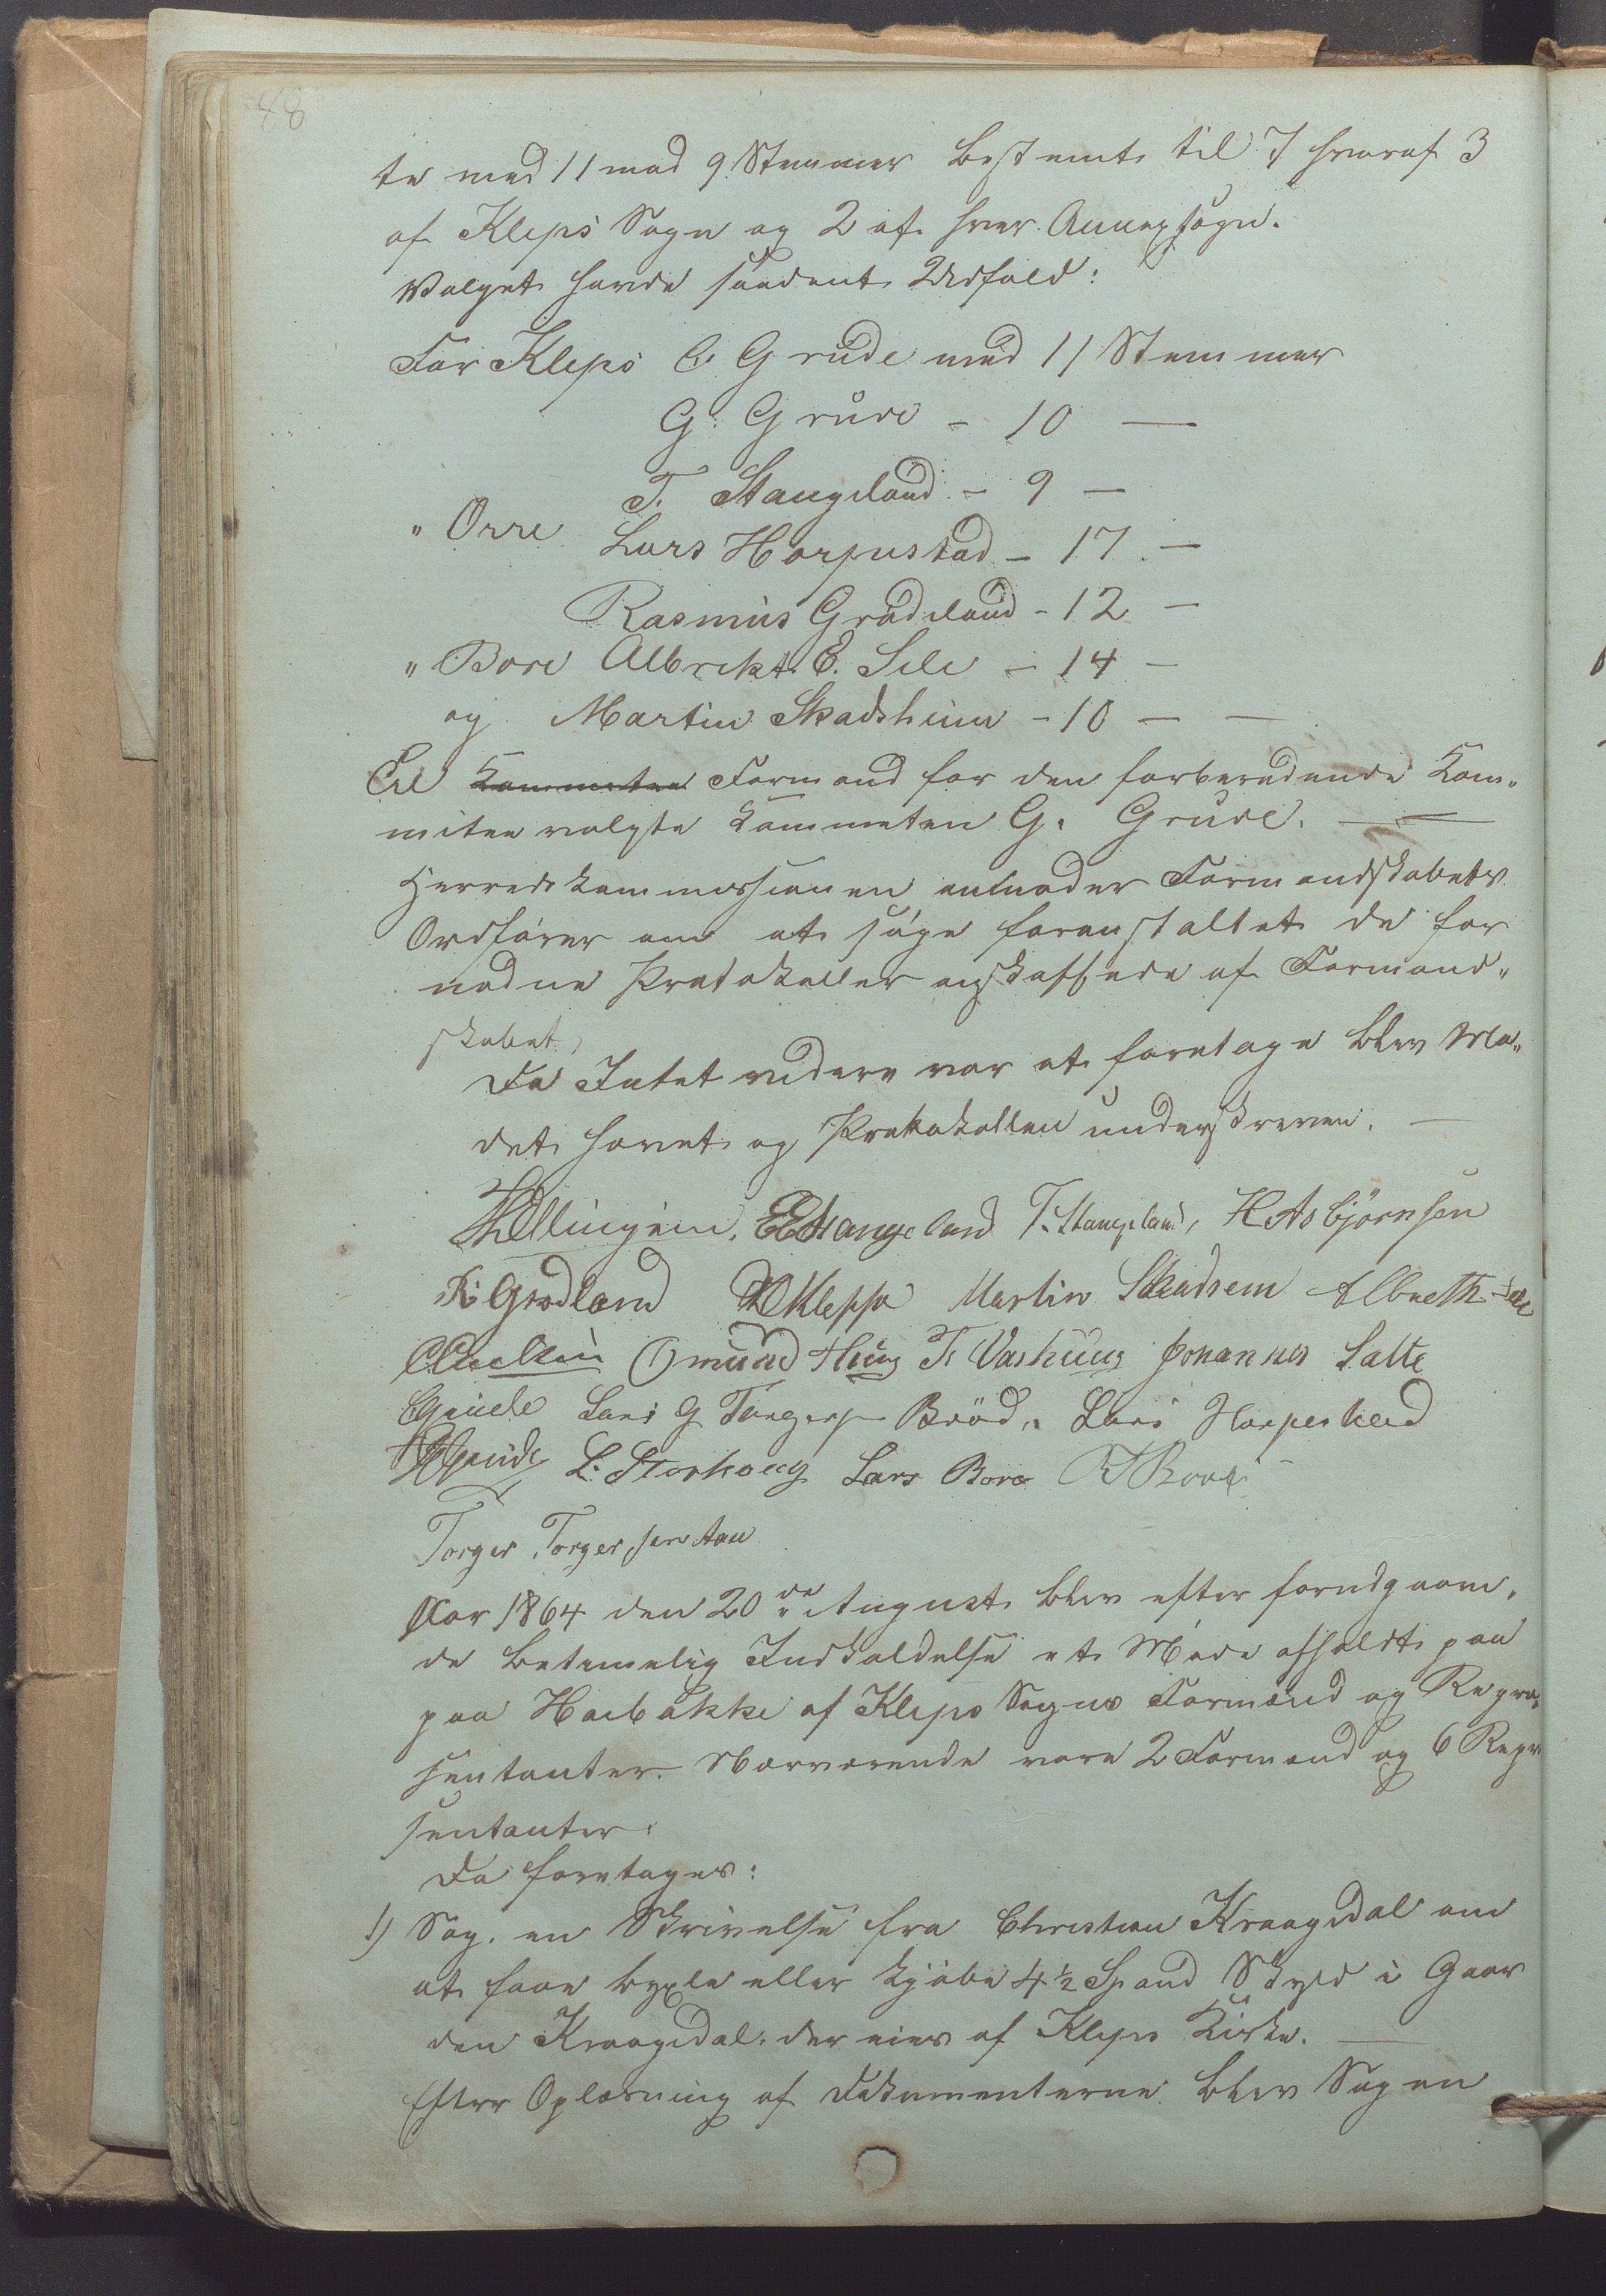 88
te med 11 mod 9 Stemmer bestemt til 7 hvoraf 3
af Kleps Sogn og 2 af hver Annexsogn.
Valget havde saadant Udfald:
For Kleps C. Grude med 11 Stemmer
G. Grude - 10 —
T. Stangeland - 9 —
" Orre
Lars Horpestad - 17 —
Rasmus Grødeland - 12 —
" Bore Albrekt E. Sele - 14 —
og Martin Skadsheim - 10 — —
Til Kommeteen Formand for den forberedende Kom"
mitee valgte Kommeteen G. Grude. —
Herredskommissionen anmoder Formandskabets
Ordfører om at søge foranstaltet de for
nødne Protokoller anskaffede af Formand"
skabet,
Da Intet videre var at foretage blev Mø"
det hævet og Protokollen underskreven. —
EStangeland T. Stangeland, H Asbjørnsen
R. Grødland Kleppe Martin Skadsem Albreth Sele
Omund Houg T. Vashuus Johannes Salte
Grude Lars G Torgers Brød, Lars Horpestad
Grude L. Storhoug Lars Bore Bore
Torger Torgersen Aau
Aar 1864 den 20de August blev efter forudgaaen"
de betimelig Indkaldelse et Møde afholdt paa
paa Haibakke af Kleps Sogns Formænd og Repræ"
sentanter. Nærværende vare 2 Formænd og 6 Repræ
sentanter.
Da foretages:
1) Sag. en Skrivelse fra Christian Kraagedal om
at faae bygle eller kjøbe 4 ½ Spand Skyld i Gaar
den Kraagedal. der eies af Kleps Kirke. —
Efter Oplæsning af Dokumenterne blev Sagen